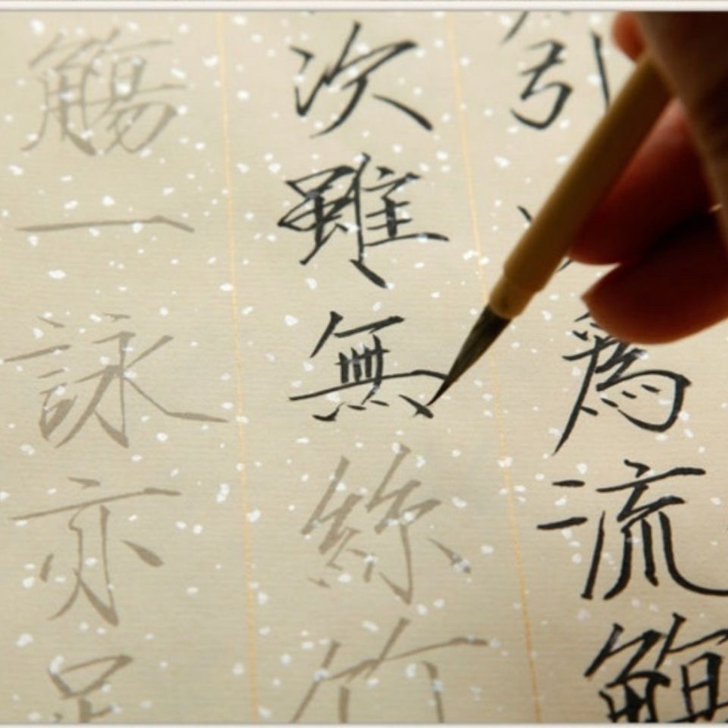 引爲流觴
次雖無絲竹
觴一詠亦足